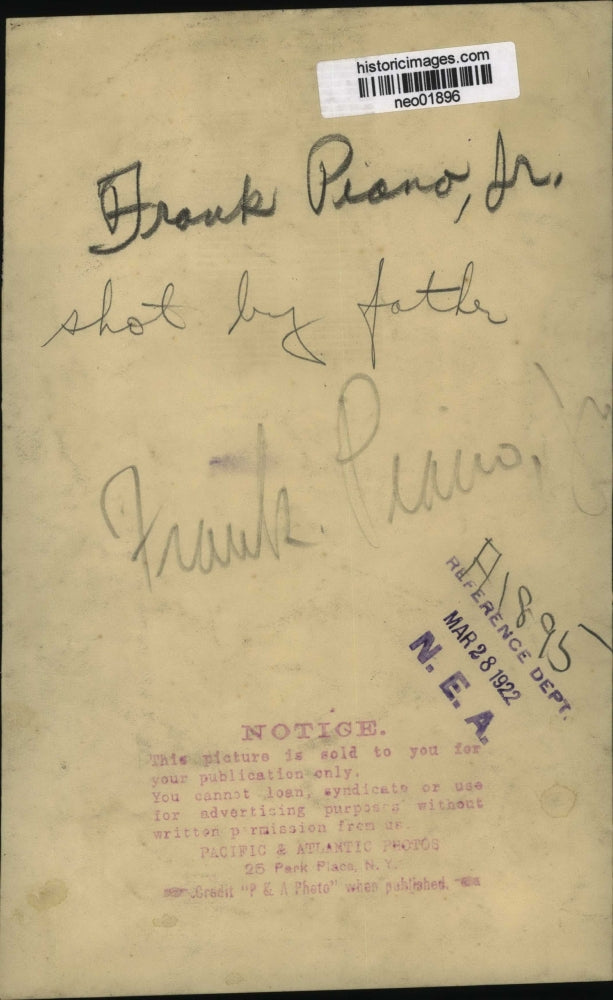 historicimages.com
neo01896
Frank Piano, Jr.
shot by father
Frank. Piano, Jr
A1895
REFERENCE DEPT.
MAR 28 1922
N. E. A.
NOTICE.
This picture is sold to you for
your publication only.
You cannot loan, syndicate or use
for advertising purposes without
written p rmission from us.
PACIFIC & ATLANTIC PHOTOS
25 Park Place, N. Y.
Credit "P & A Photo" when published.